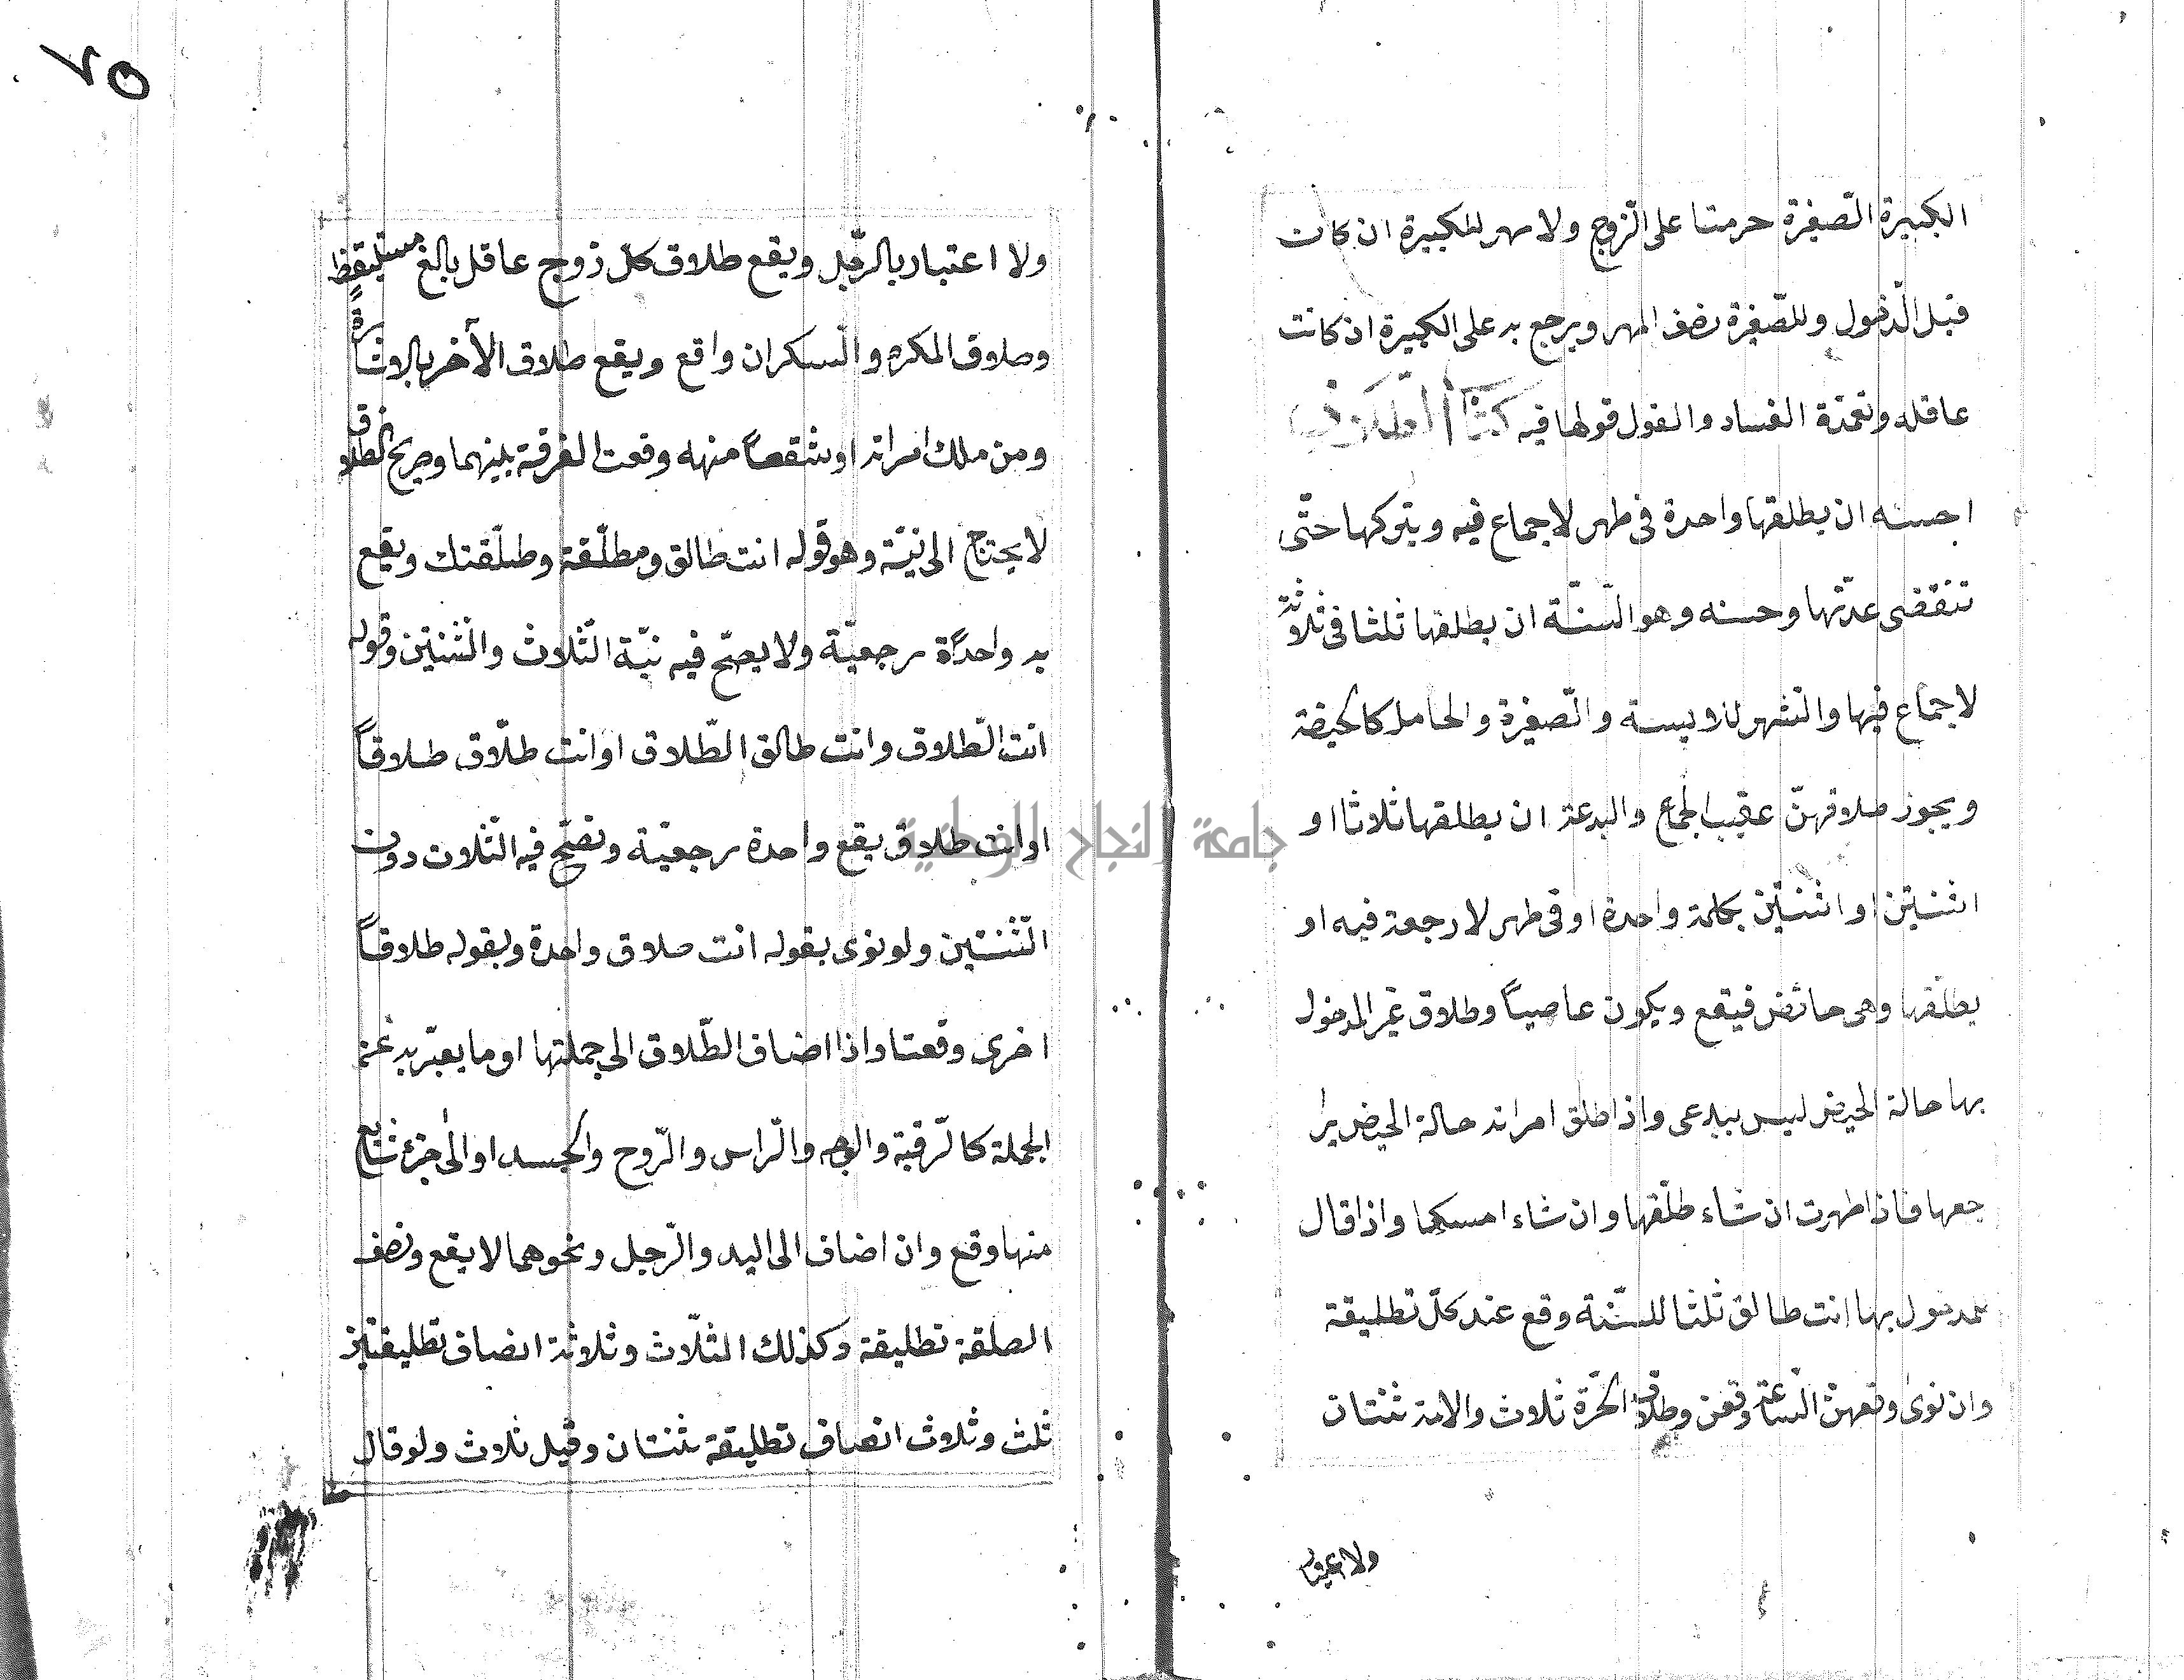 الكبيرة الصّغيرة حرمتا على الزّوج ولا مهر للكبيرة ان كانت
قبل الّدخول وللصّغيرة نصف المهر ويرجع به على الكبيرة ان كانت
عاقله وتعمدّة الفساد والقول قولها فيه كتاب الطلاق
احسنه ان يطلقها واحدة فى طهر لاجماع فيه ويتركها حتّى
تنقضى عدّتها وحسنه وهو السّنّة ان يطلقها ثلثا فى ثلاثة
لاجماع فيها والشهر للاويسة والصّغيرة والحامل كالحيضة
ويجوز طلاقهنّ عقيب الجماع والبدعة ان يطلقها ثلاثا او
اثنتين او اثنتين بكلمة واحدة او فى طهر لا رجعة فيه او
يطلّقها وهى حائض فيقع ويكون عاصياً وطلاق غير المدخول
بها حالة الحيض ليس ببدعى واذا طلق امراته حالة الحيض يرا
جعها فاذا طهرت ان شاء طلّقها وان شاء امسكها واذا قال
لمدخول بها انت طالق ثلثا للسّنّة وقع عند كلّ تطليقة
وان نوى وقعهنّ السّاعة وقعن وطلاق الحرّة ثلاث والامة ثنتان
ولا اعتبار
٧٥
ولا اعتبار بالرّجل ويقع طلاق كلّ زوج عاقل بالغ مستيقظ
وطلاق المكره والسكران واقع ويقع طلاق الأخر بالاشارة
ومن ملك امراته او شقصاً منه وقعت الفرقة بينهما وصريح الطلاق
لا يحتاج الى نيّة وهو قوله انت طالق ومطلّقة وطلّقتك ويقع
به واحدةً رجعيّة ولا يصحّ فيه نيّة الثّلاث والثنتين وقوله
انت الطّلاق وانت طالق الطّلاق او انت طلّاق طلاقاً
او انت طلاق يقع واحدة رجعيّة وتصّح فيه الثّلاث دون
الثّنتين ولو نوى بقوله انت طلاق واحدة وبقوله طلاقاً
اخرى وقعتا واذا اضاف الطّلاق الى جملتها او ما يعبّر به عن
الجملة كالرّقبة والوجه والرّاس والرّوح والجسد او الى جزء شايع
منها وقع وان اضاف الى اليد والرّجل ونحوهما لا يقع ونصف
الطلقة تطليقة وكذلك الثلّاث وثلاثة انصاف تطليقتين
ثلث وثلاث انصاف تطليقة ثنتان وقيل ثلاث ولو قال
جامعة النجاح الوطنية